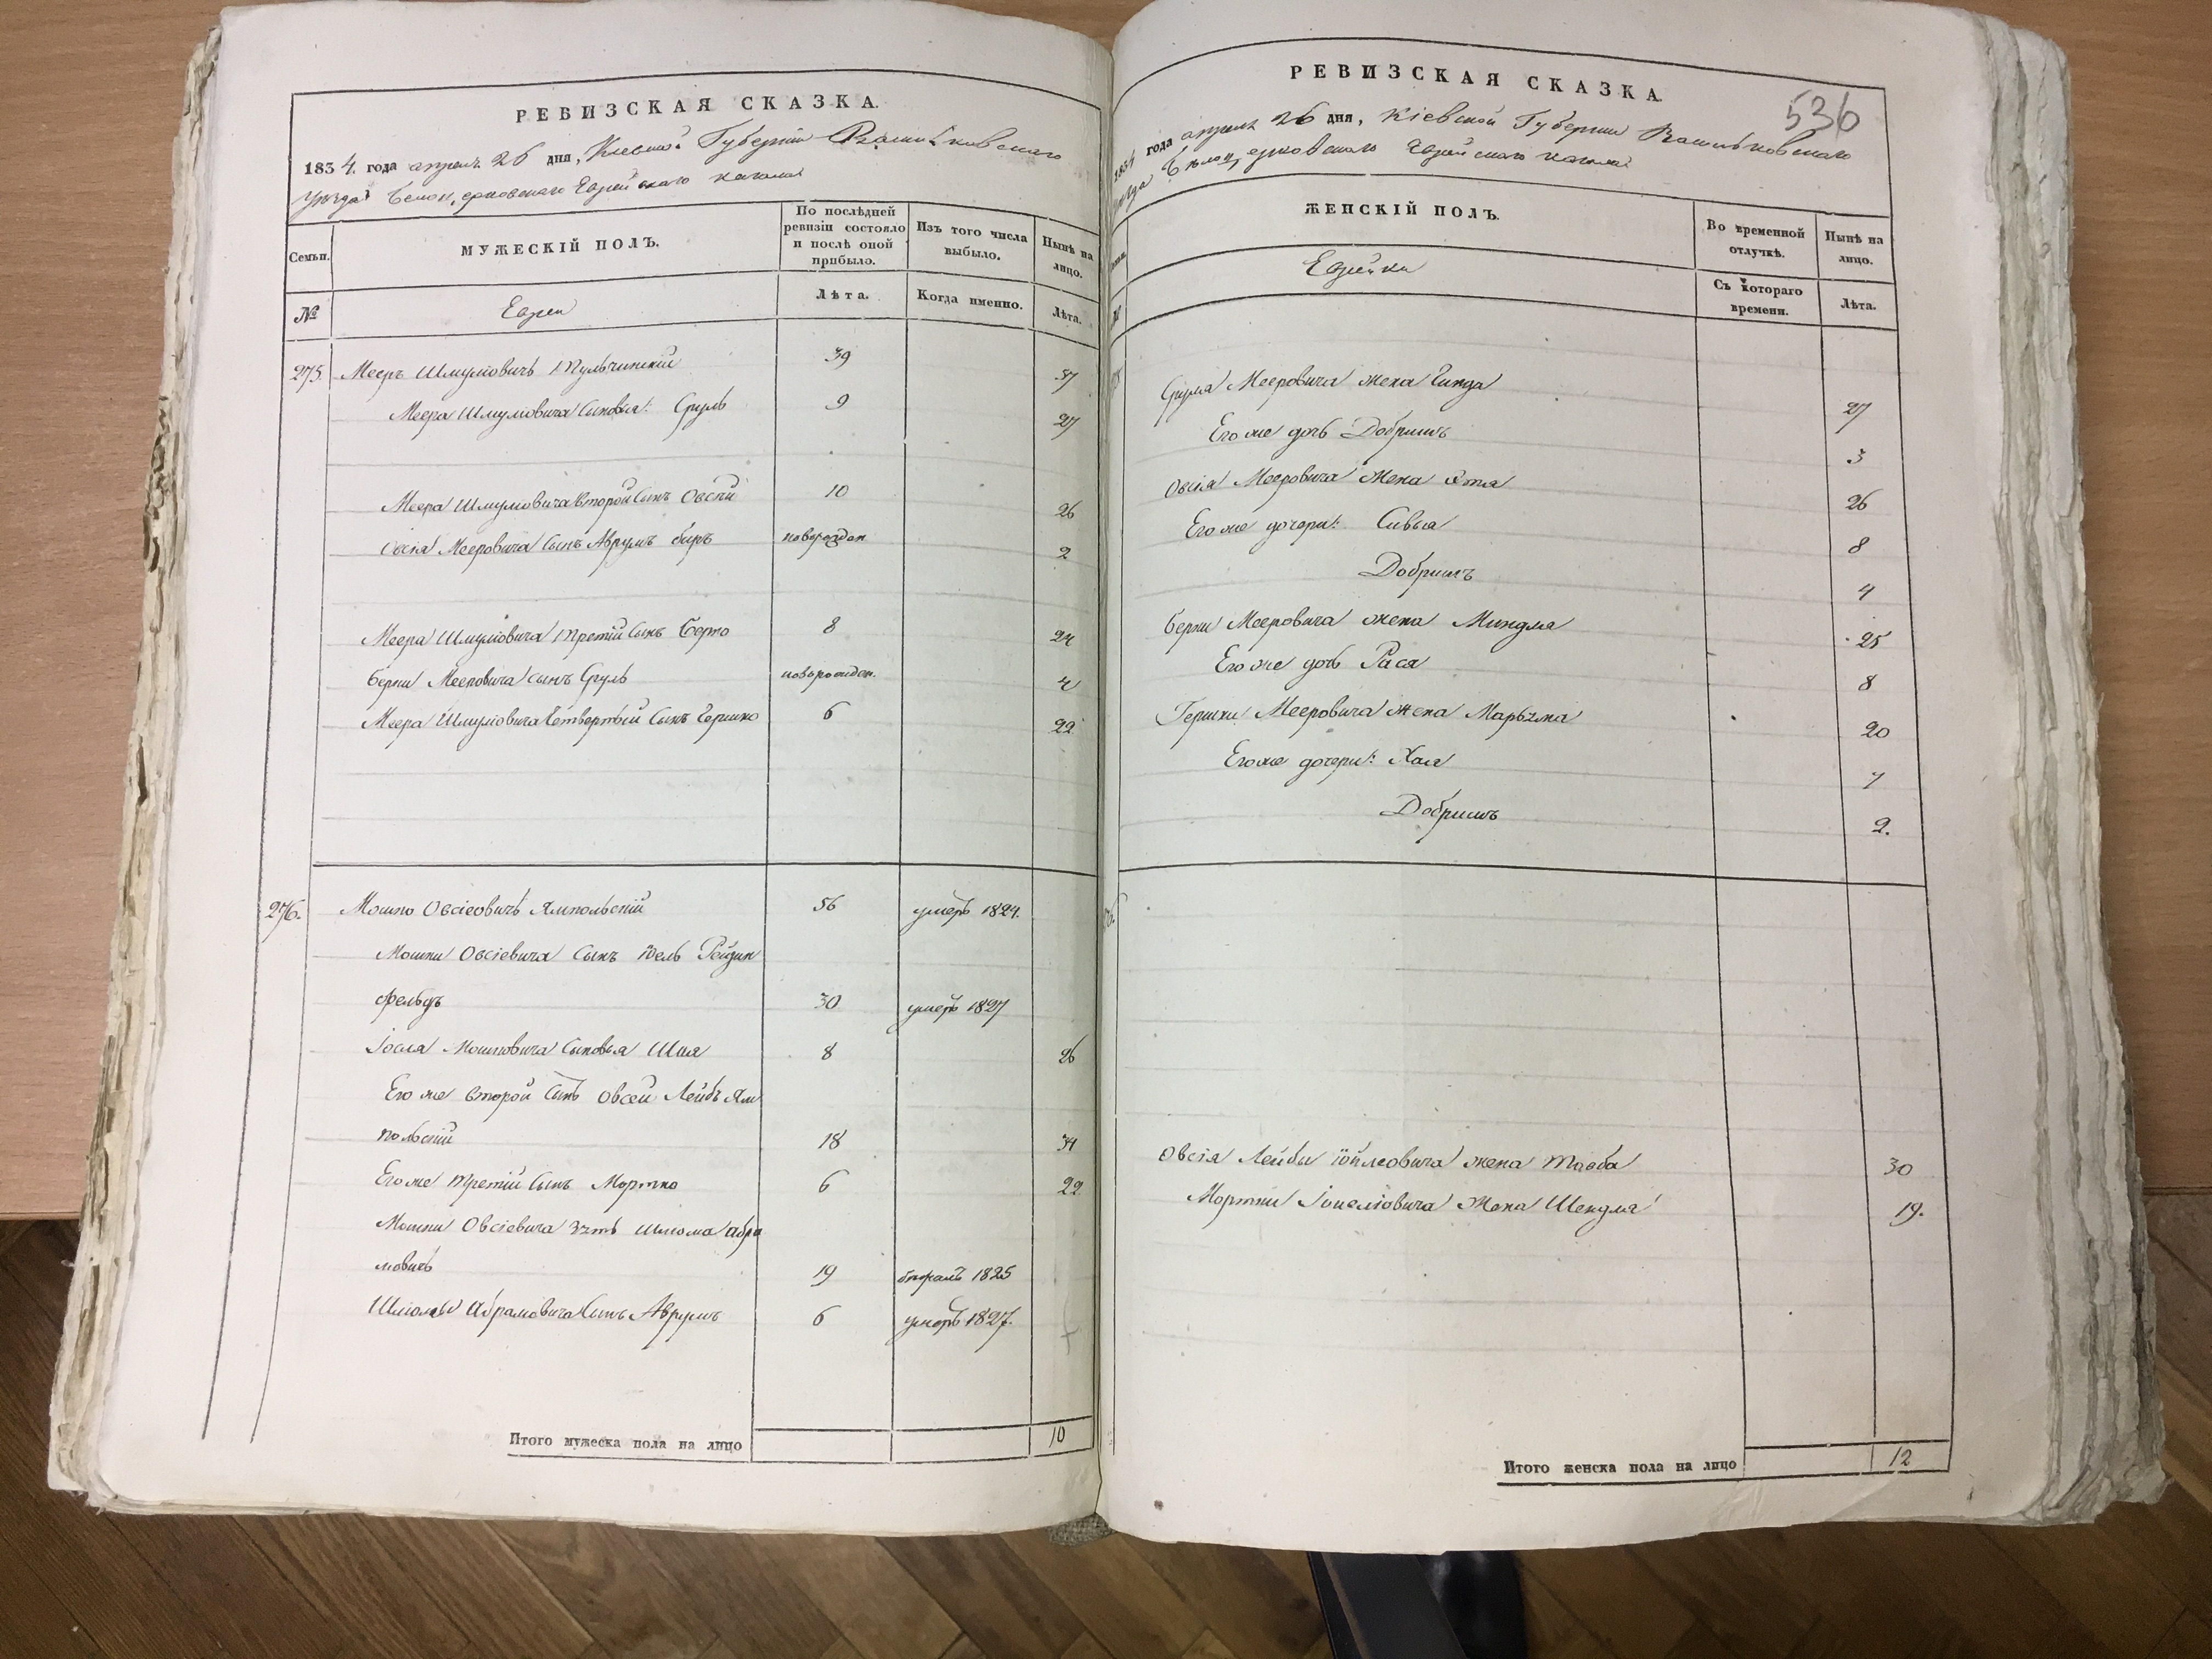 РЕВИЗСКАЯ СКАЗКА.
1834 года апреля 26 дня, Киевской Губернии Васильковского
уезда Белоцерковского Еврейского кагала
Семьи.
МУЖЕСКІЙ ПОЛЪ.
По послѣдней ревизіи состояло и послѣ оной прибыло.
Изъ того числа выбыло.
Нынѣ на лицо.
№
Евреи
Лѣта.
Когда именно.
Лѣта.
275. Мееръ Шмулiовичъ Тульчинскiй 39
Меера Шмулiовича Сыновья: Сруль 9 27
Меера Шмулiовича второй Сынъ Овсей 10 26
Овсiя Мееровича Сынъ Аврумъ беръ новорожден 2
Меера Шмулiовича третiй Сынъ Берко 8 24
Берки Мееровича сынъ Сруль новорожден. 4
Меера Шмулiовича Четвертый Сынъ Гершко 6 22
276. Мошко Овсiевичъ Ямпольскiй 56 умеръ 1824.
Мошки Овсiевича Сынъ
фельдъ 30 умеръ 1827
Мошковича Сыновья Шая 8 26
Его же второй Сынъ Овсей Лейбъ Ям
польскiй 18 34
Его же третiй Сынъ Мортко 6 22
Мошки Овсiевича зять Шлiома Абра
мовичъ 19 1825
Шлiомы Абрамовича Сынъ Аврумъ 6 умеръ 1827.
Итого мужеска пола на лицо 10
РЕВИЗСКАЯ СКАЗКА.
536
1834 года апреля 26 дня, Кіевской Губернии Васильковского
уезда Белоцерковского Еврейского кагала
ЖЕНСКІЙ ПОЛЪ.
Во временной отлучкѣ.
Нынѣ на лицо.
Еврейки
Съ котораго времени.
Лѣта.
Сруля Мееровича жена Гинда 27
Его же дочь Добришъ 3
Овсiя Мееровича жена 26
Его же дочери: Сивья 8
Добришъ 4
Берки Мееровича жена Миндля 25
Его же дочь Рася 8
Гершки Мееровича жена 20
Его же дочери: Хая
Добришъ 2.
Овсiя Лейбы жена Тавба 30
Мортки жена Шендля 19.
Итого женска пола на лицо 12